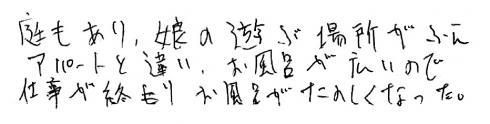 庭もあり、娘の遊ぶ場所がふえ
アパートと違い、お風呂が広いので
仕事が終わり お風呂がたのしくなった。